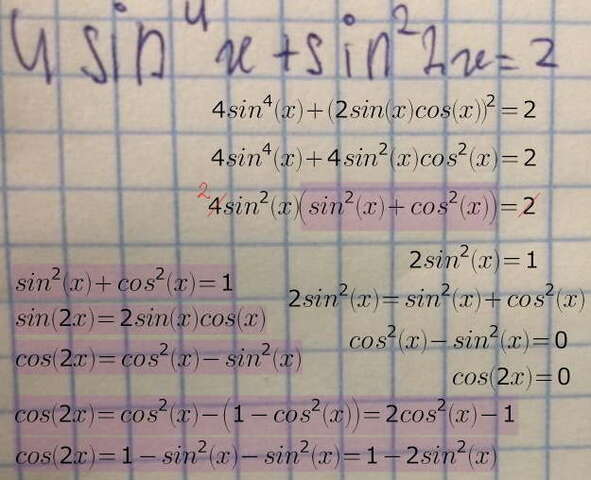 4 sin⁴x + sin²2x = 2
4sin⁴(x)+(2sin(x)cos(x))²=2
4sin⁴(x)+4sin²(x)cos²(x)=2
2 4sin²(x)(sin²(x)+cos²(x))=2
2sin²(x)=1
2sin²(x)=sin²(x)+cos²(x)
cos²(x)−sin²(x)=0
cos(2x)=0
sin²(x)+cos²(x)=1
sin(2x)=2sin(x)cos(x)
cos(2x)=cos²(x)−sin²(x)
cos(2x)=cos²(x)−(1−cos²(x))=2cos²(x)−1
cos(2x)=1−sin²(x)−sin²(x)=1−2sin²(x)